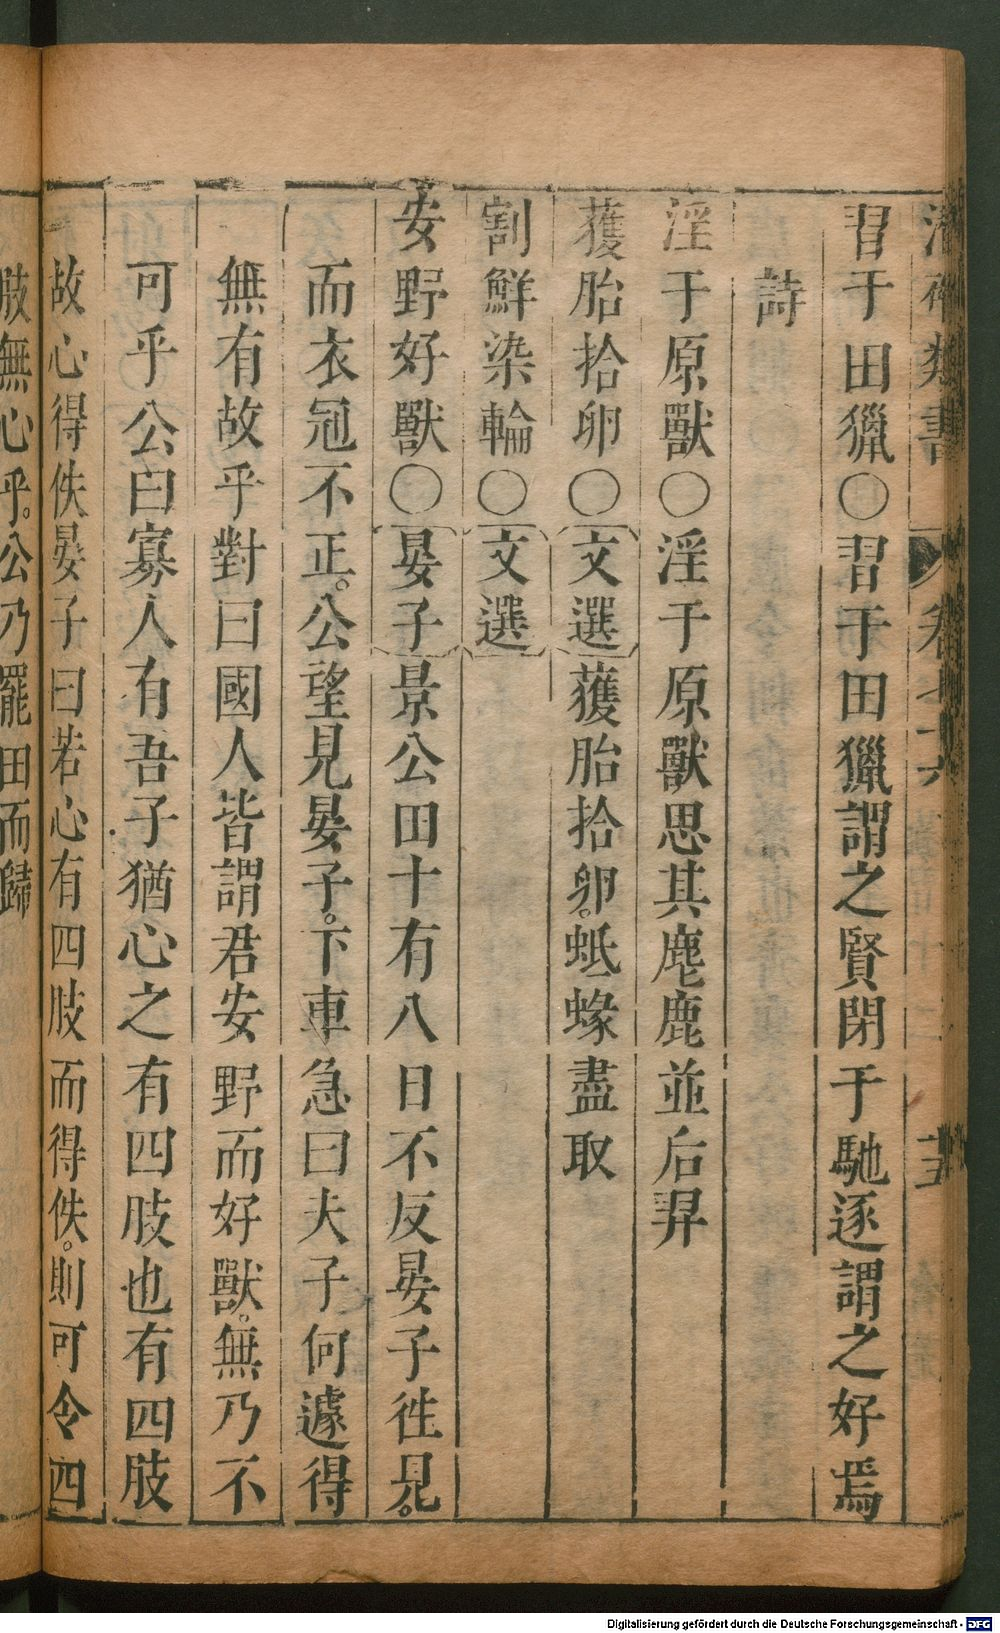 類書 卷七十六 十五
習于田獵○習于田獵謂之賢閉于馳逐謂之好焉
詩
淫于原獸○淫于原獸思其麀鹿並后羿
獲胎拾卵○文選獲胎拾卵。蚳蝝盡取
割鮮染輪○文選
安野好獸○晏子景公田十有八日不反晏子徃見。
而衣冠不正。公望見晏子。下車急曰夫子何遽得
無有故乎對曰國人皆謂君安野而好獸。無乃不
可乎公曰寡人有吾子猶心之有四肢也有四肢
故心得佚晏子曰若心有四肢而得佚。則可令四
肢無心乎。公乃罷田而歸
Digitalisierung gefördert durch die Deutsche Forschungsgemeinschaft - DFG